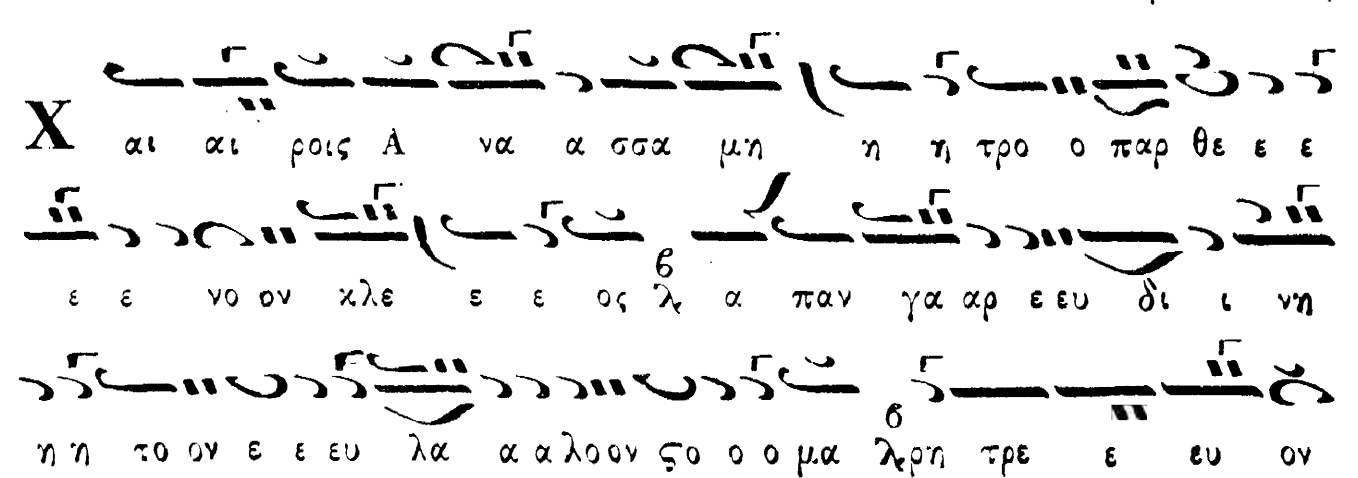 Χ αι αι ροις Α να α σσα μη η η τρο ο παρ θε ε ε
ε ε νο ον κλε ε ε ος λ α παν γα αρ ε ευ δι ι νη
η η το ον ε ε ευ λα α α λο ον ϛο ο ο μα λ ρη τρε ε ευ ον